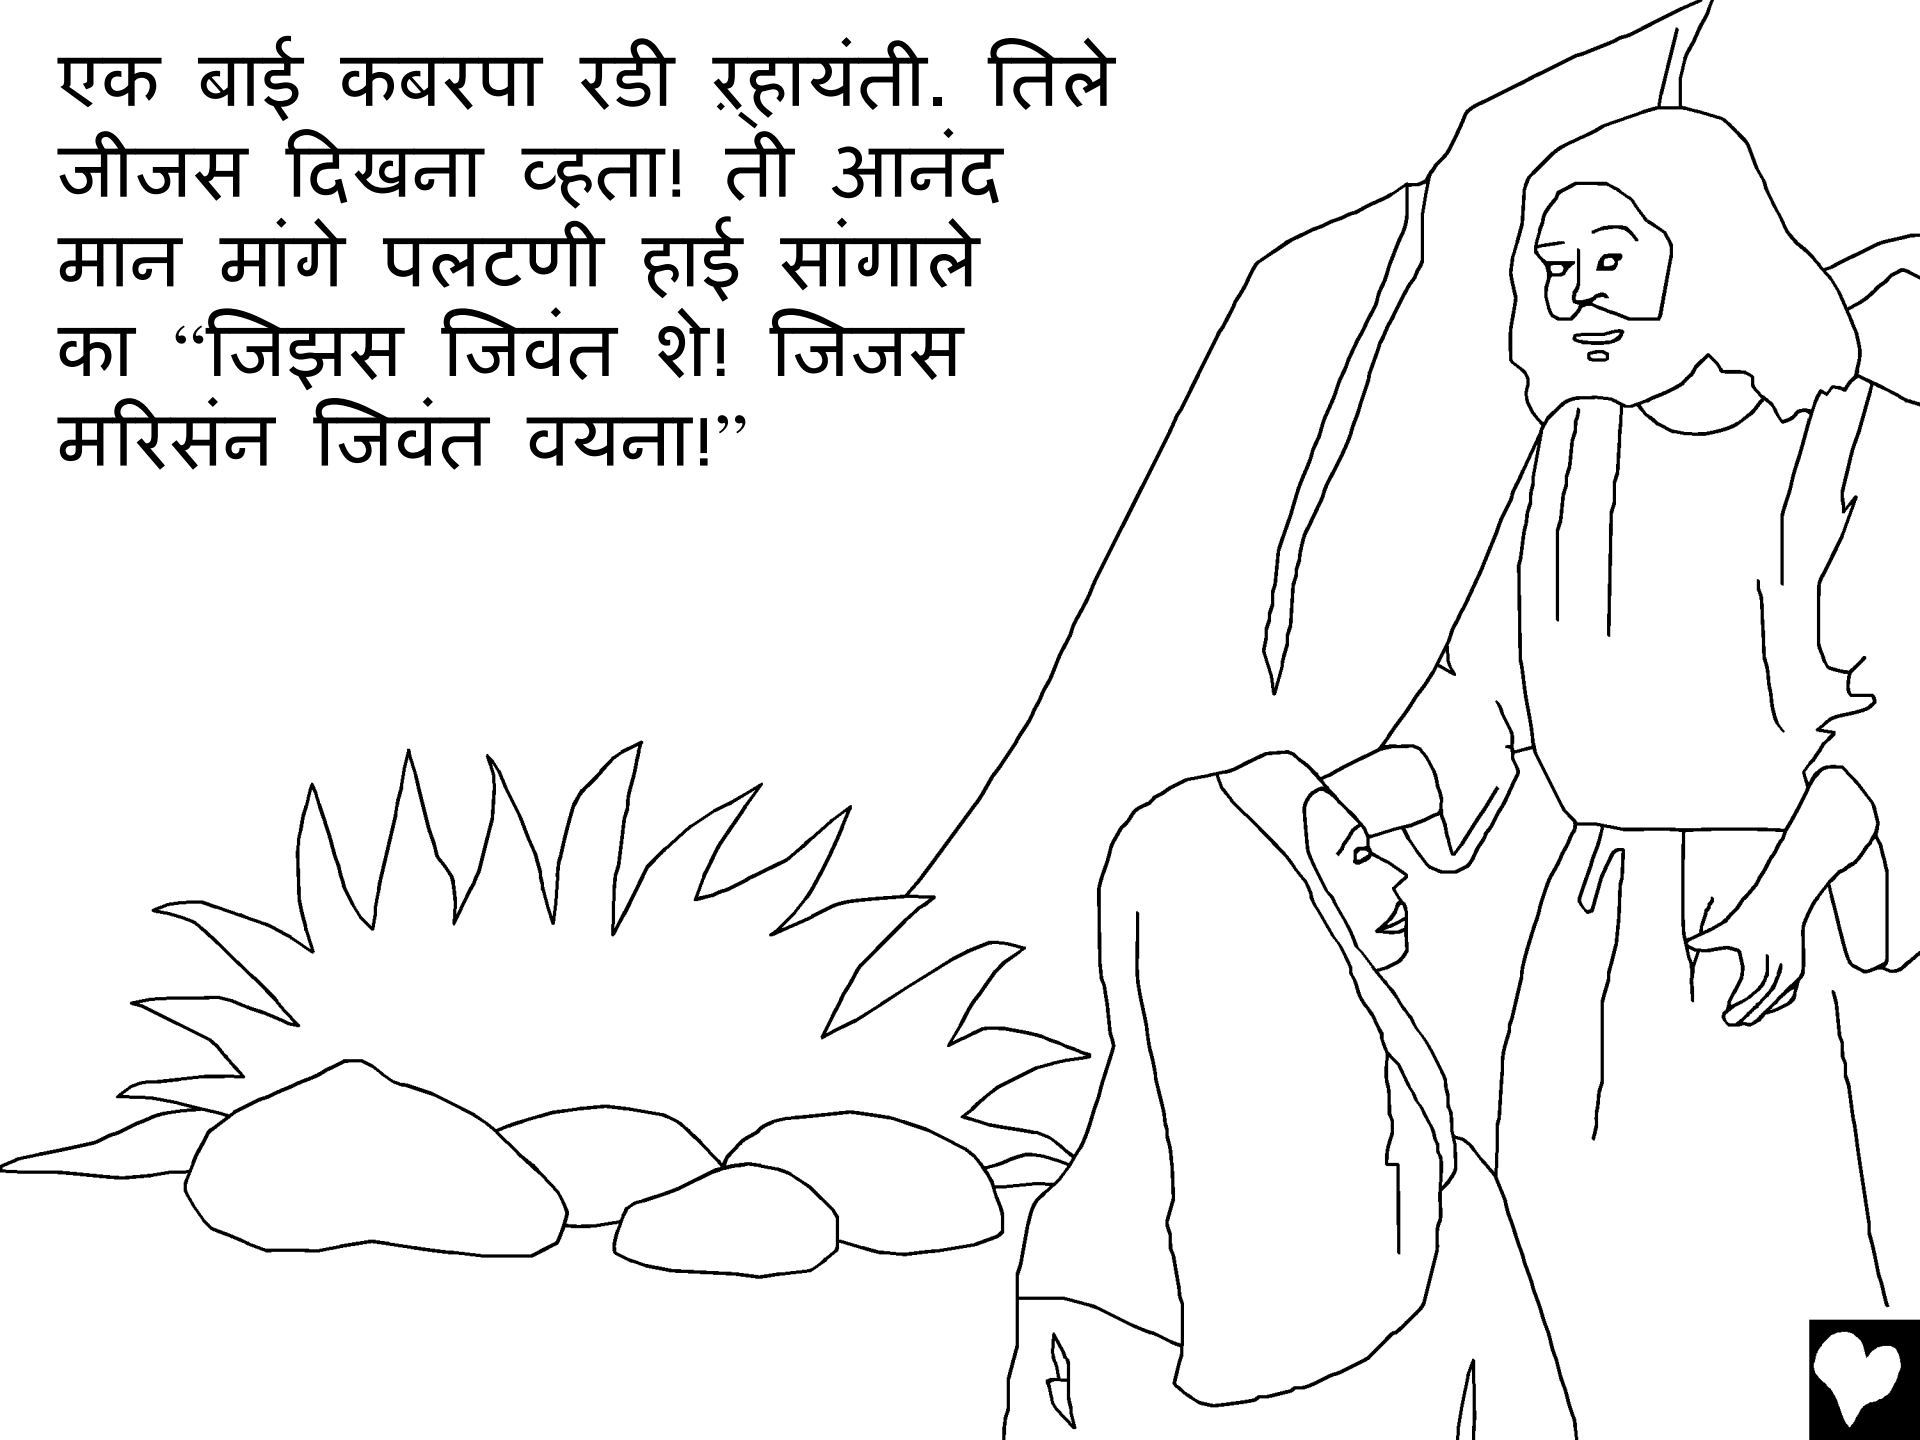 एक बाई कबरपा रडी ऱ्हायंती. तिले
जीजस दिखना व्हता! ती आनंद
मान मांगे पलटणी हाई सांगाले
का “जिझस जिवंत शे! जिजस
मरिसंन जिवंत वयना!”